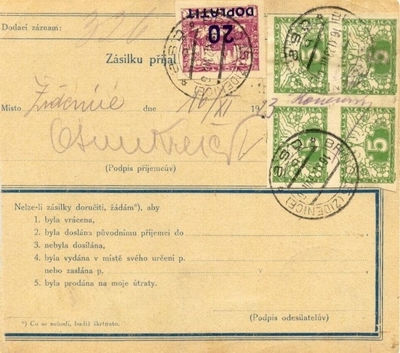 Dodací záznam:
Zásilku přijal
20
DOPLATIT
Místo Židenice dne 16/XI 1923
(Podpis příjemcův)
5
BRNO
(ŽIDENICE)
Nelze-li zásilky doručiti, žádám*), aby
1. byla vrácena,
2. byla doslána původnímu příjemci do
3. nebyla dosílána,
4. byla vydána v místě svého určení p.
nebo zaslána p.
5. byla prodána na moje útraty.
(Podpis odesilatelův)
*) Co se nehodí, budiž škrtnuto.